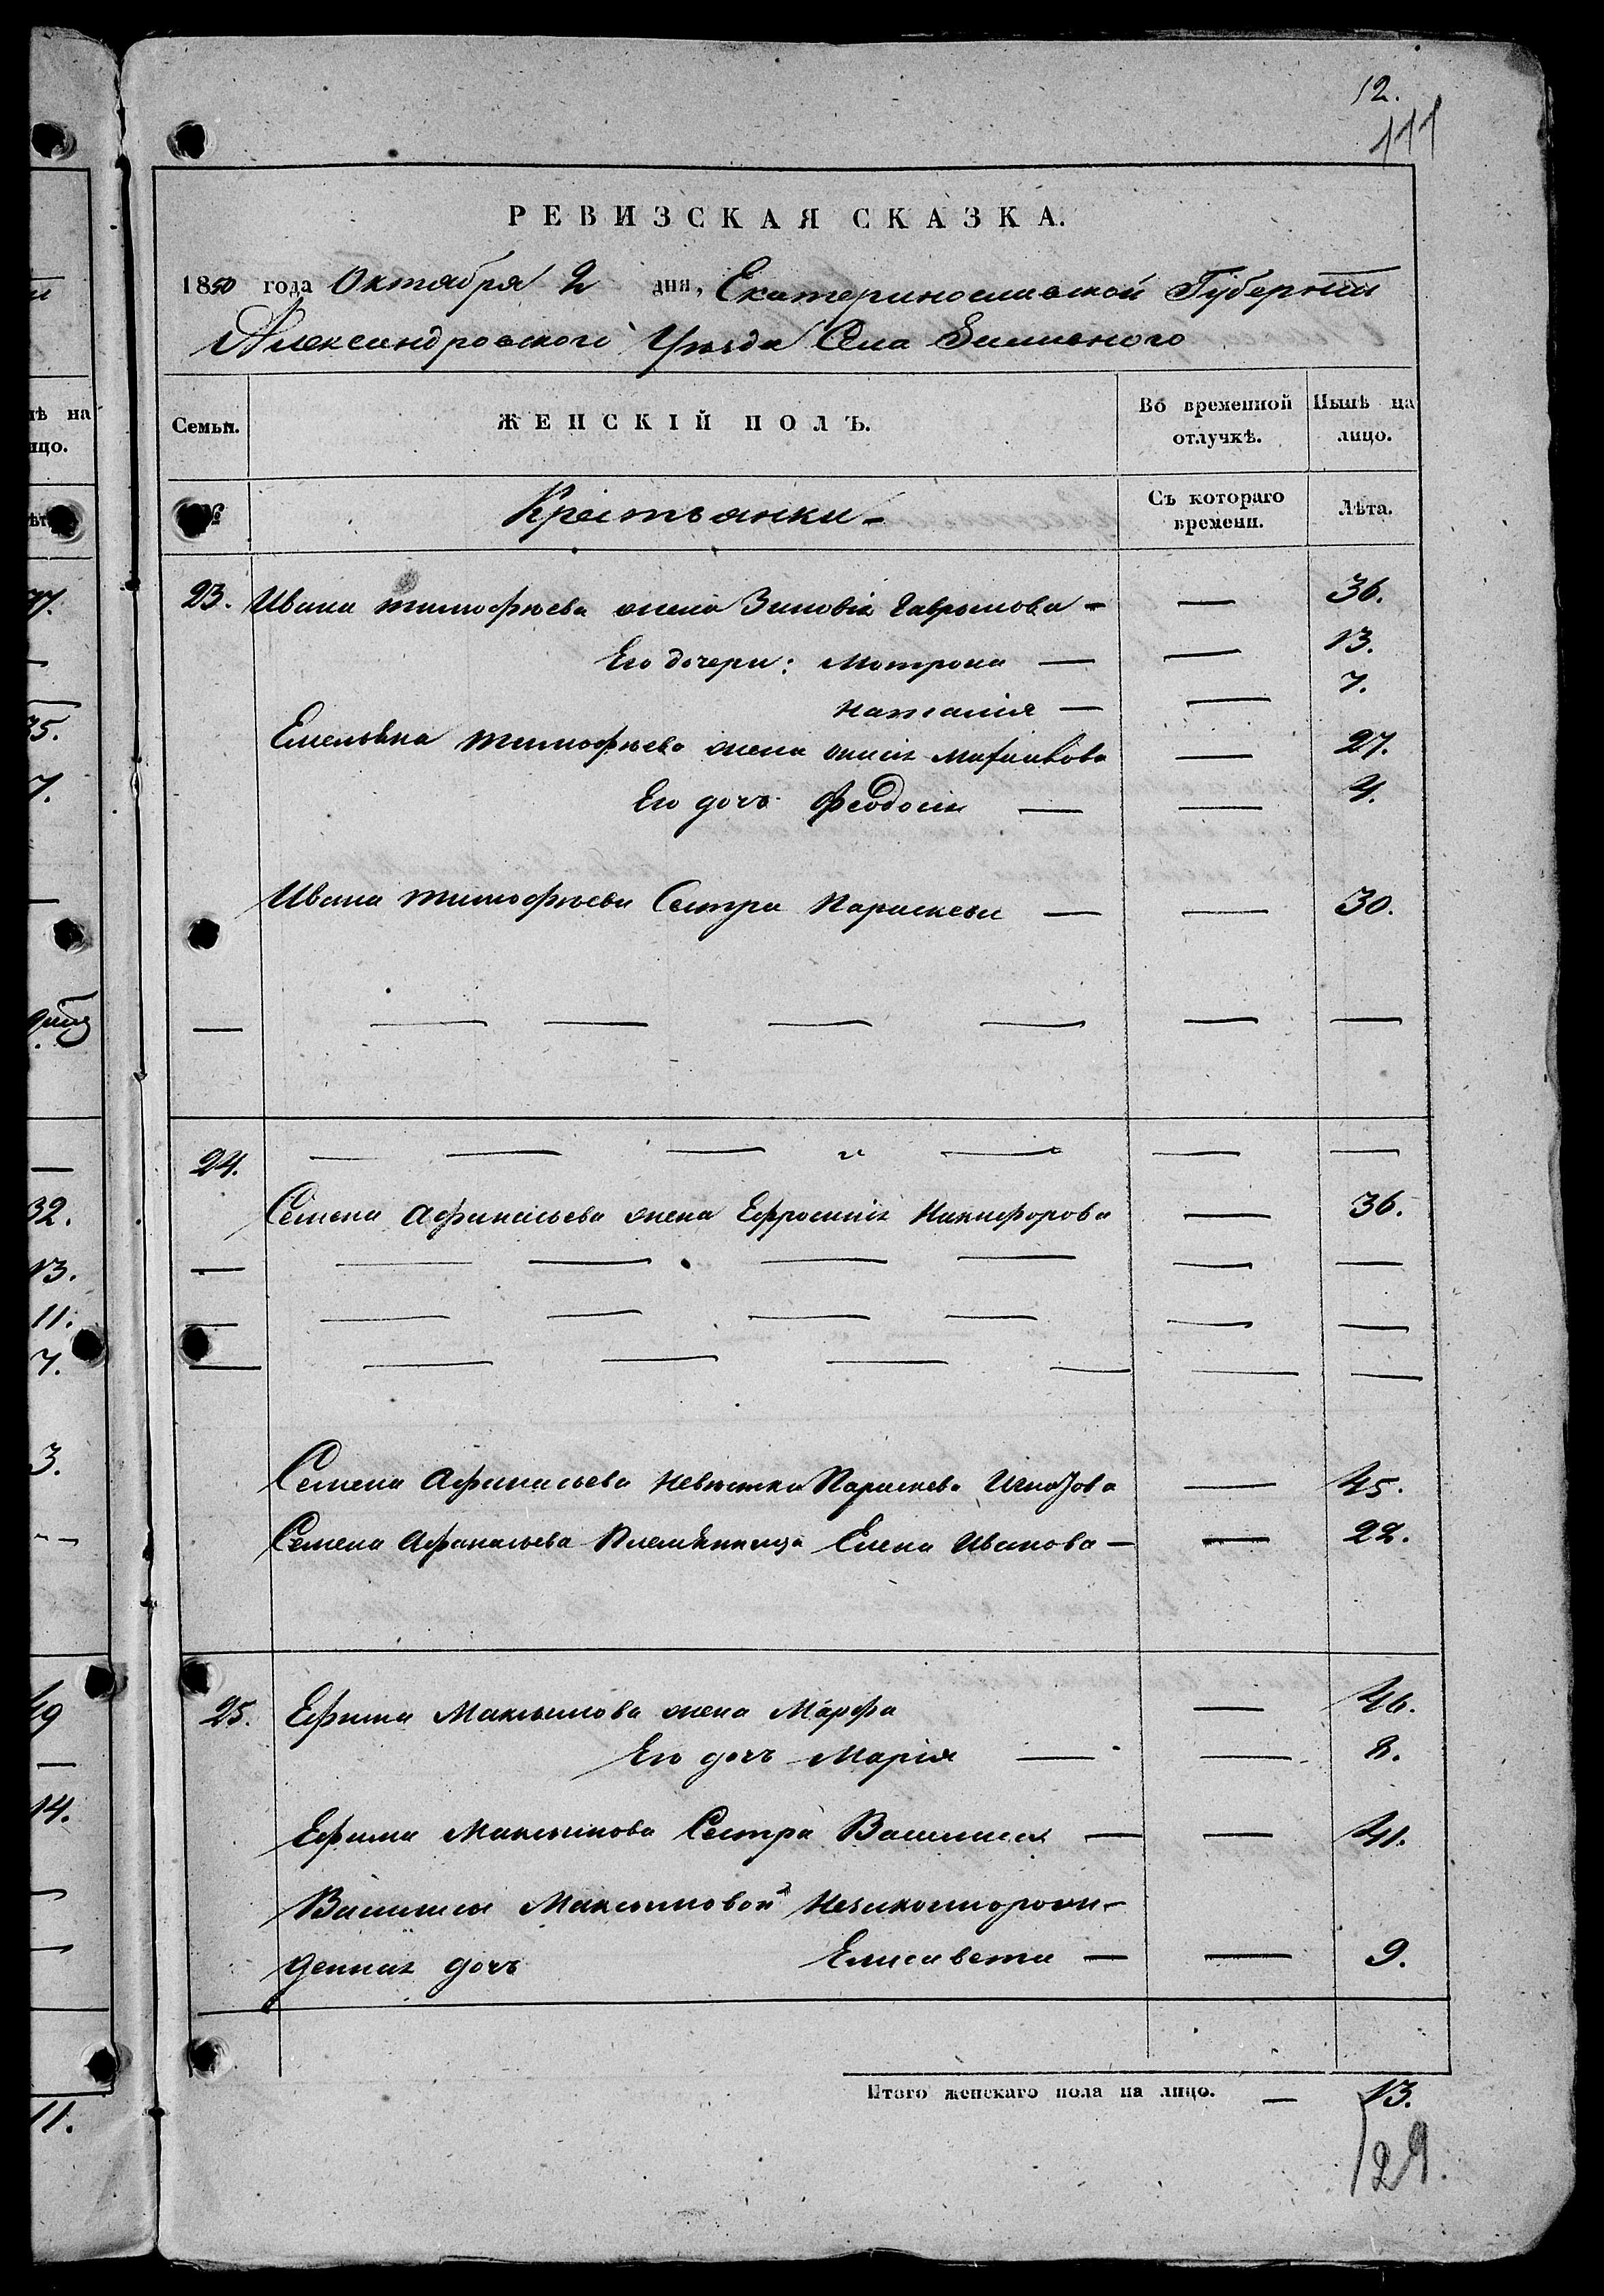 12.
111
РЕВИЗСКАЯ СКАЗКА.
1850 года Октября 2 дня, Екатеринославской Губернии
Александровского Уезда Села
Семьи. ЖЕНСКІЙ ПОЛЪ. Во временной отлучкѣ. Нынѣ на лицо.
№ Крестьянки - Съ котораго времени. Лѣта.
23. Ивана Тимофѣева жена Зиновія Гаврилова - — 36.
Его дочери: Мотрона — — 13.
Наталія — — 7.
Емельяна Тимофѣева жена — 27.
Его дочь Феодосія — — 4.
Ивана Тимофѣева Сестра Параскева — — 30.
24. — — — „ — — —
Семена Афанасьева жена Ефросинія Никифорова — 36.
Семена Афанасьева Невѣстка Параскева — 45.
Семена Афанасьева Племянница Елена Иванова — — 22.
25. Ефима Максимова жена Марфа — 46.
Его дочь Марія — — 8.
Ефима Максимова Сестра Василиса — — 41.
Василисы Максимовой Незаконнорож-
денная дочь Елисавета — — 9.
Итого женскаго пола на лицо. — 13.
129.
нѣ на
лицо.
35.
7.
32.
13.
11.
7.
3.
49
14.
11.